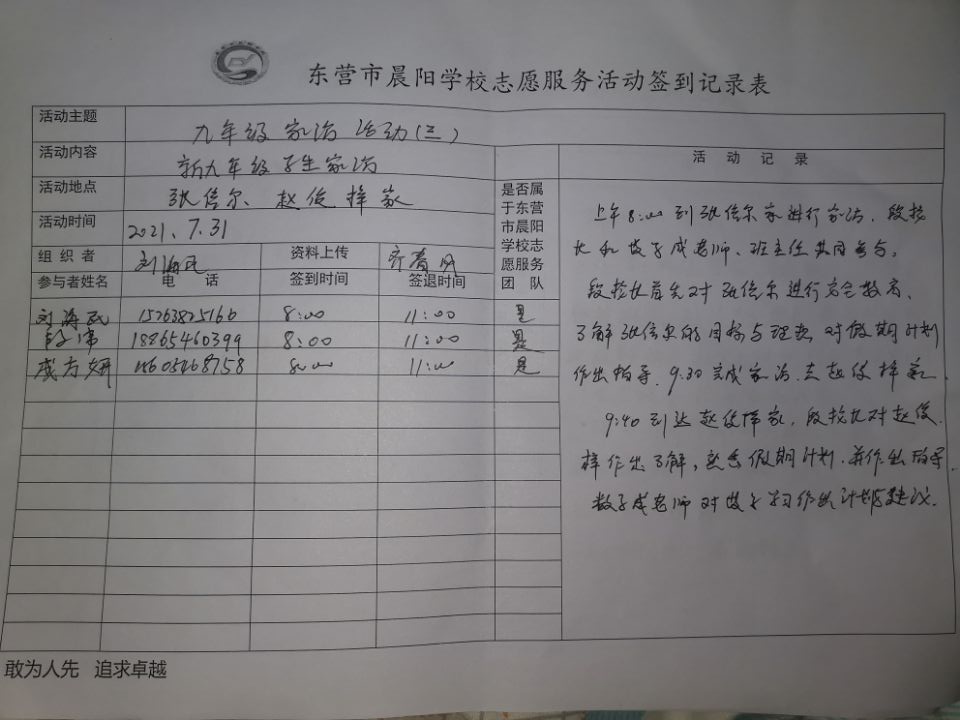 东营市晨阳学校志愿服务活动签到记录表
活动主题 九年级家访活动(三)
活动内容 新九年级学生家访
活动地点 张倍尔、赵俊择家
活动时间 2021、7.31
组织者 刘海民 资料上传
参与者姓名 电话 签到时间 签退时间
是否属于东营市晨阳学校志愿服务团队
刘海民 15263825160 8:00 11:00 是
18865460399 8:00 11:00 是
成方妍 15605468758 8:00 11:00 是
活动记录
上午8:00到张倍尔家进行家访,段校
长和 成老师、班主任共同参与,
段校长首先对张倍尔进行 教育,
了解张倍尔的目标与理想,对假期计划
作出指导,9:30完成家访,去赵俊择家
9:40到达赵俊择家,段校长对赵俊
择作出了解, 假期计划,并作出指导
成老师对 学习作出计划与建议.
敢为人先 追求卓越